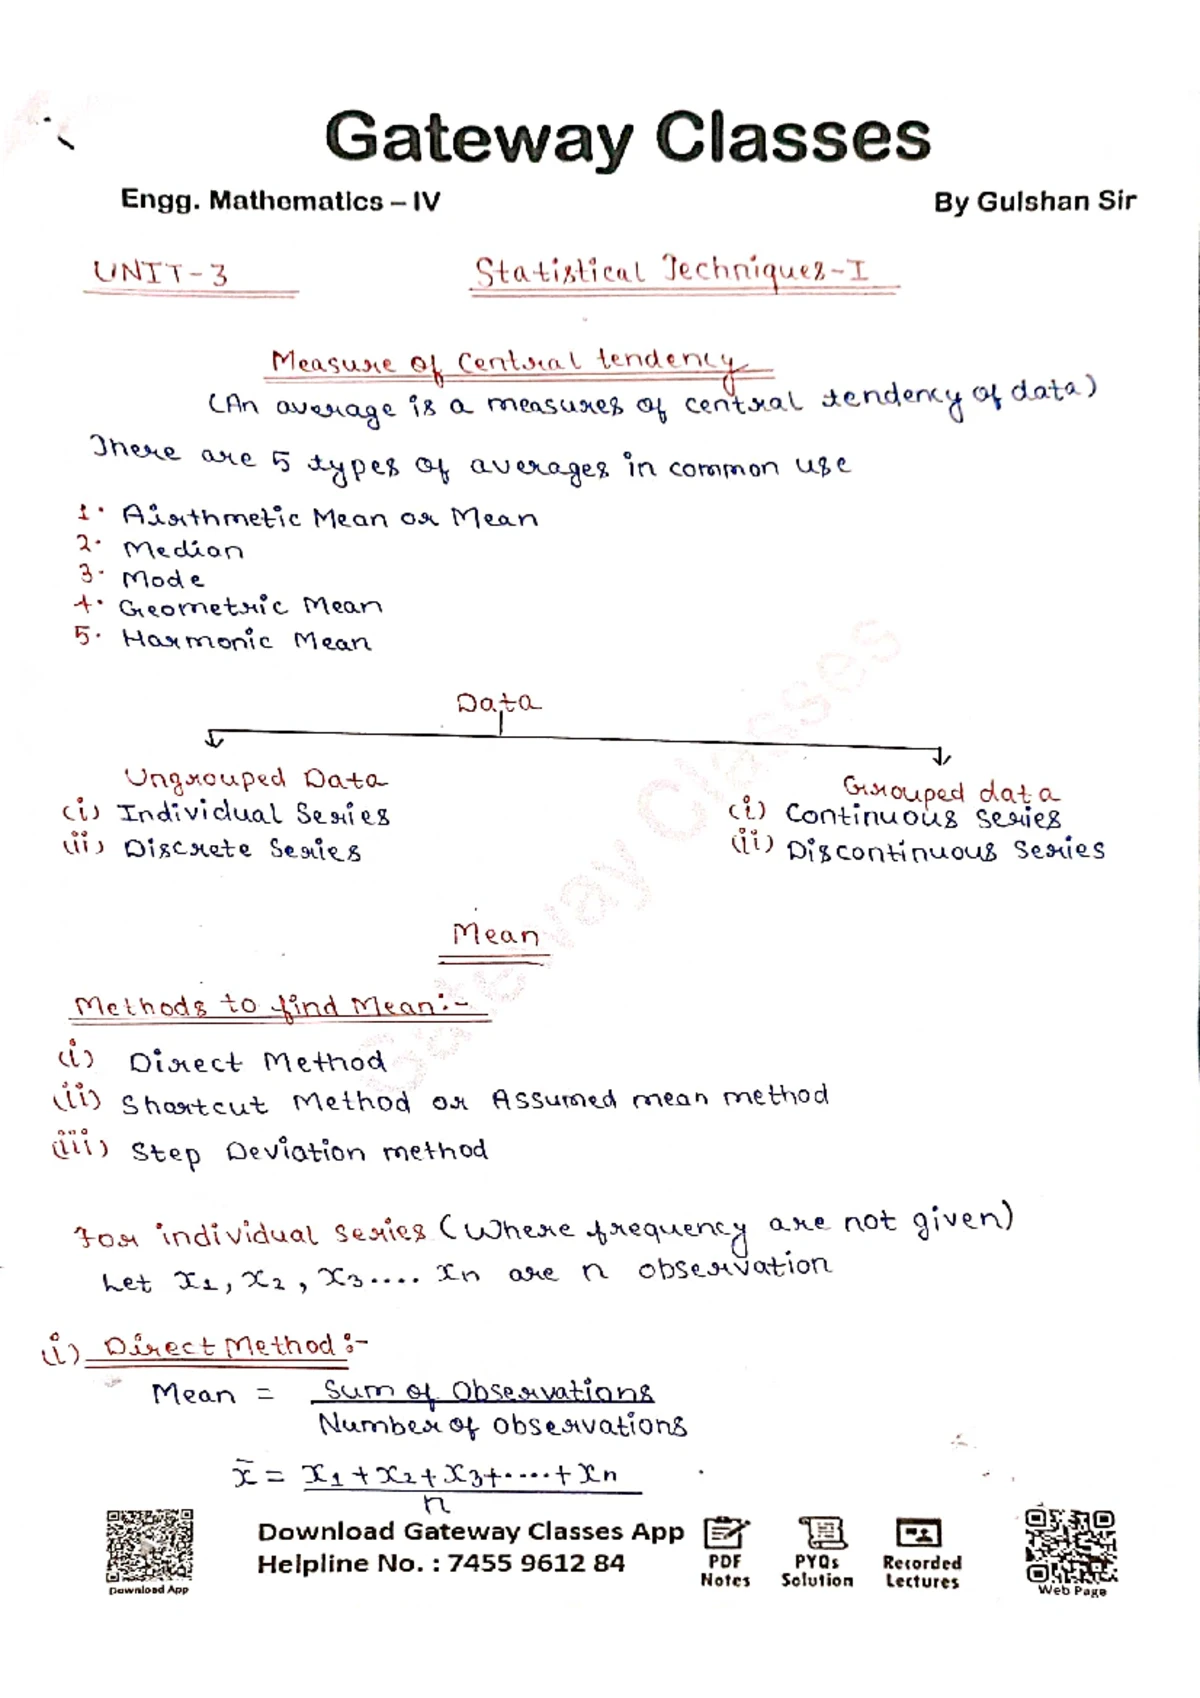 Gateway Classes
Engg. Mathematics – IV By Gulshan Sir
UNIT-3 Statistical Techniques-I
Measure of Central tendency
(An average is a measures of central tendency of data)
There are 5 types of averages in common use
1. Airthmetic Mean or Mean
2. Median
3. Mode
4. Geometric Mean
5. Harmonic Mean
Data
Ungrouped Data Grouped data
(i) Individual Series (i) Continuous series
(ii) Discrete Series (ii) Discontinuous series
Mean
Methods to find Mean:-
(i) Direct Method
(ii) Shortcut Method or Assumed mean method
(iii) Step Deviation method
For individual series (Where frequency are not given)
Let x1, x2, x3.... xn are n observation
(i) Direct Method:-
Mean = Sum of Observations
Number of observations
x̄ = x1 + x2 + x3 + ..... + xn
n
Download Gateway Classes App
Helpline No. : 7455 9612 84
PDF Notes
PYQs Solution
Recorded Lectures
Download App
Web Page
Gateway Classes